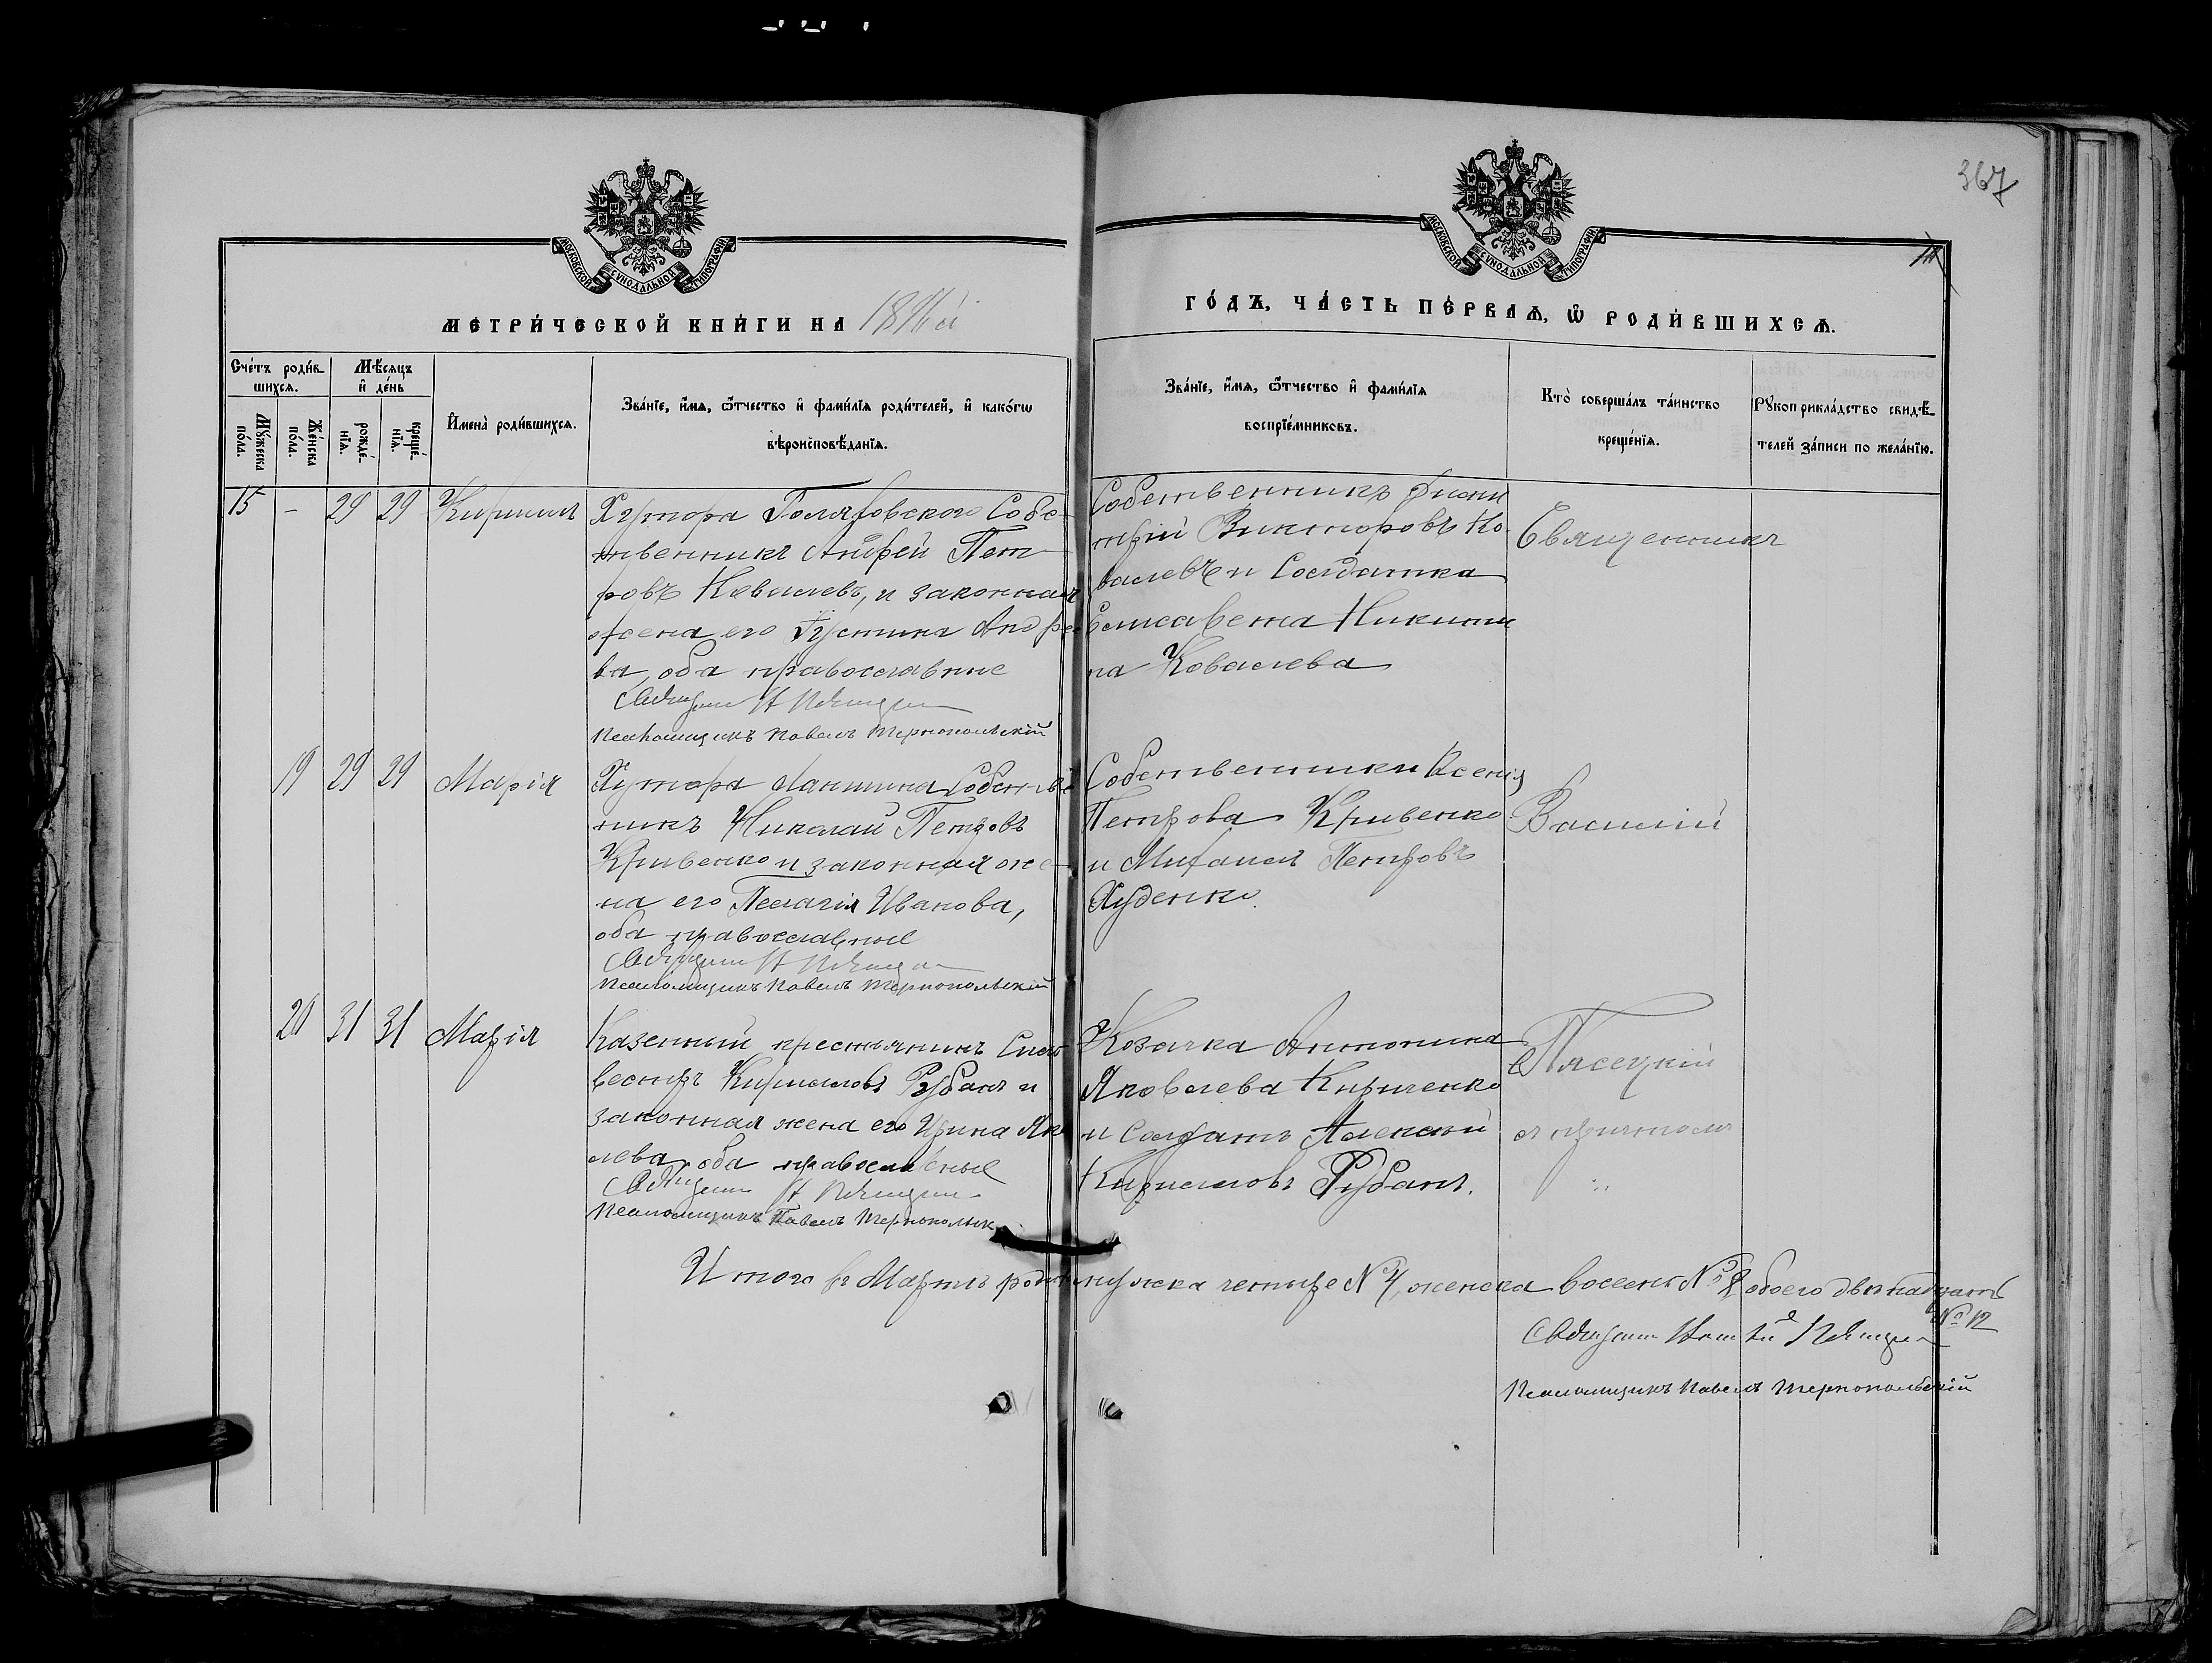 367
МОСКОВСКОЙ СУНОДАЛЬНОЙ ТИПОГРАФІИ
МОСКОВСКОЙ СУНОДАЛЬНОЙ ТИПОГРАФІИ
МЕТРИ́ЧЕСКОЙ КНИ́ГИ НА
ГО́ДЪ, ЧА́СТЬ ПЕ́РВАѦ, Ѽ РОДИ́ВШИХСѦ.
Сче́тъ роди́вшихсѧ.
Мѣ́сѧцъ и҆ де́нь
Мꙋ́жеска по́ла.
Же́нска по́ла.
рожде́нїѧ.
креще́нїѧ.
И҆мена̀ роди́вшихсѧ.
Зва́нїе, и҆́мѧ, ѻ҆́тчество и҆ фами́лїѧ роди́телей, и҆ како́гѡ
вѣроисповѣ́данїѧ.
Зва́нїе, и҆́мѧ, ѻ҆́тчество и҆ фами́лїѧ
воспрїе́мниковъ.
Кто̀ соверша́лъ та́инство
креще́нїѧ.
Рꙋкоприкла́дство свидѣ́-
телей за́писи по жела́нїю.
15 - 29 29 Кириллъ
Хутора Собс-
твенникъ Андрей Пет-
ровъ Ковалевъ, и законная
жена его Іустина Андрее-
ва, оба православные
Псаломщикъ Павелъ Тернопольскій
Собственникъ Дими
трій Викторовъ Ко-
валевъ и Солдатка
Елисавета Никити
на Ковалева
Священникъ
19 29 29 Марія
Хутора Собствен
никъ Николай Петровъ
Кривенко и законная же-
на его Пелагія Иванова,
оба православные
Псаломщикъ Павелъ Тернопольскій
Собственники Ксенія
Петрова Кривенко
и Михаилъ Петровъ
Худенко.
Василій
20 31 31 Марія
Казенный крестьянинъ Силь
вестръ Кирилловъ Рубанъ и
законная жена его Ирина Яко
влева, оба православные
Псаломщикъ Павелъ Тернопольск
Козачка Антонина
Яковлева Кириченко
и Солдатъ Алексей
Кирилловъ Рубанъ.
Пясецкій
съ причтомъ
Итого въ Мартѣ родил мужска четыре № 4, женска восемь № 8 обоего двѣнадцать
№ 12
Псаломщикъ Павелъ Тернопольскій